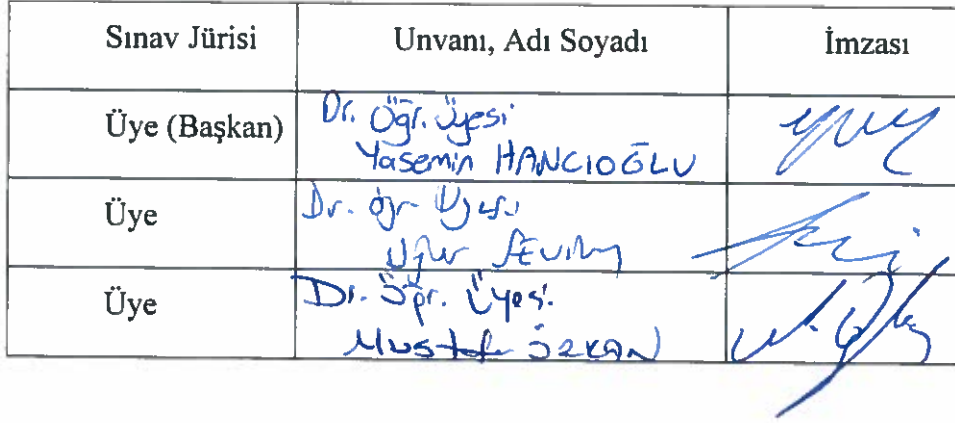 Sınav Jürisi Unvanı, Adı Soyadı İmzası
Üye (Başkan) Dr. Öğr. Üyesi
Yasemin HANCIOĞLU
Üye Dr. Öğr. Üyesi
Uğur
Üye Dr. Öğr. Üyesi
Mustafa ÖZKAN